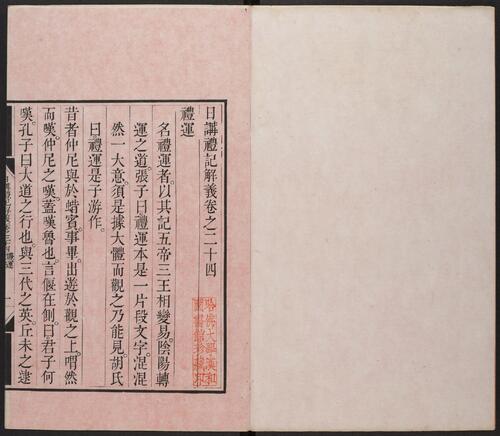 日講禮記解義卷之二十四
禮運
名禮運者。以其記五帝三王相變易。陰陽轉
運之道。張子曰禮運本是一片段文字。混混
然一大意。須是據大體而觀之乃能見。胡氏
曰禮運是子游作。
昔者仲尼與於蜡賓。事畢。出遊於觀之上。喟然
而嘆。仲尼之嘆。蓋嘆魯也。言偃在側。曰君子何
嘆。孔子曰大道之行也。與三代之英。丘未之逮
哈佛大學漢和
圖書館珍藏印